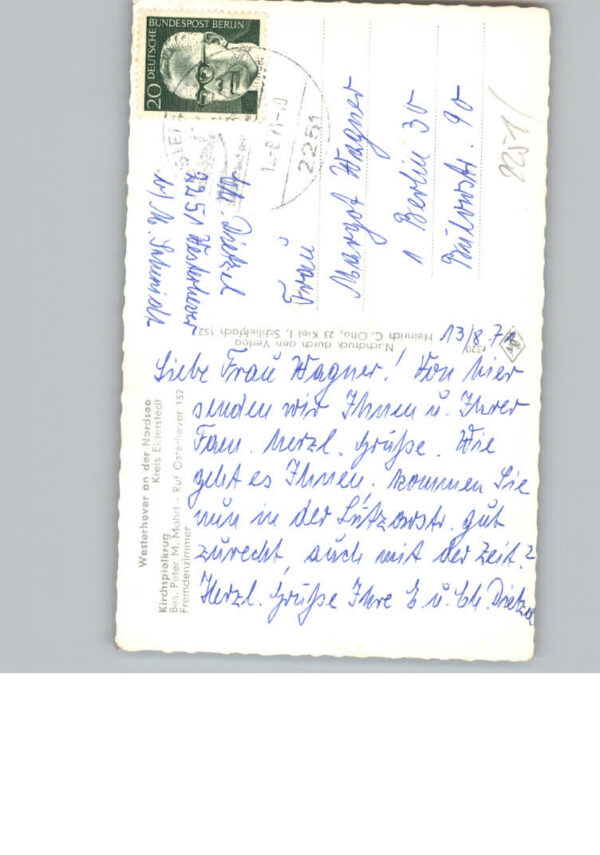 20 DEUTSCHE BUNDESPOST BERLIN
2251
2251
Frau
Margot Wagner
1 Berlin 30
Bülowstr. 90
Dietzel
2251 Westerhever
b/ M.
Nachdruck durch den Verlag
Heinrich C. Otto, 23 Kiel 1, Schließfach 152
Westerhever an der Nordsee
Kreis Eiderstedt
Kirchspielkrug
Bes. Peter M. Mahrt · Ruf Osterhever 152
Fremdenzimmer
13/8.71
Liebe Frau Wagner! Von hier
senden wir Ihnen u. Ihrer
Fam. herzl. Grüße. Wie
geht es Ihnen, kommen Sie
nun in der Lützowstr. gut
zurecht, auch mit der Zeit?
Herzl. Grüße Ihre E u. Ch. Dietzel